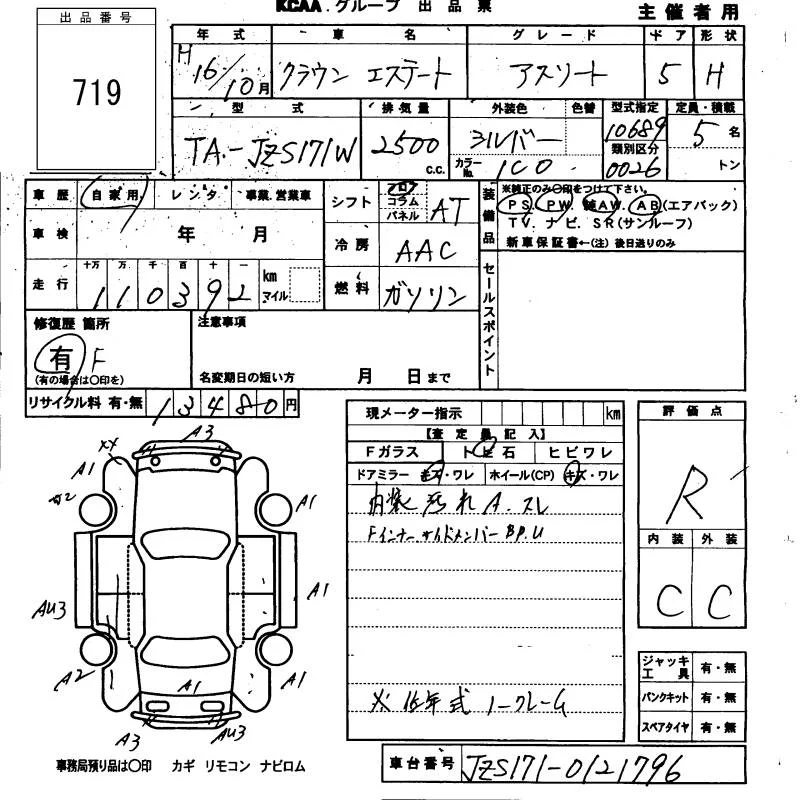 KCAA.グループ 出品票
主催者用
出品番号
719
年式 車名 グレード ドア 形状
H 16/10月 クラウン エステート アスリート 5 H
型式 排気量 外装色 色替 型式指定 定員・積載
TA-JZS171W 2500 c.c. シルバー 10689 5 名
カラーNo. 1C0 類別区分 0026 トン
車歴 自家用 レンタ 事業.営業車
シフト フロア コラム パネル AT
装備品
※純正のみ〇印をつけて下さい。
PS, PW, AW, AB(エアバック)
TV. ナビ. SR(サンルーフ)
新車保証書←(注) 後日送りのみ
車検 年 月
冷房 AAC
走行 十万 万 千 百 十 一 km マイル
1 1 0 3 9 2
燃料 ガソリン
セールスポイント
修復歴 箇所
有 F
(有の場合は〇印を)
注意事項
名変期日の短い方 月 日まで
リサイクル料 有・無 1 3 4 8 0 円
現メーター指示 km
【査定員記入】
Fガラス トビ石 ヒビワレ
ドアミラー キズ・ワレ ホイール(CP) キズ・ワレ
内装 汚れ A. スレ
Fインナー サイドメンバー BP.U
※ 16年式 ノークレーム
評価点
R
内装 外装
C C
ジャッキ 工具 有・無
パンクキット 有・無
スペアタイヤ 有・無
A3
XX
A1
A2
A1
AU3
A1
A2
A1
A1
A3
AU3
事務局預り品は〇印 カギ リモコン ナビロム
車台番号 JZS171-0121796